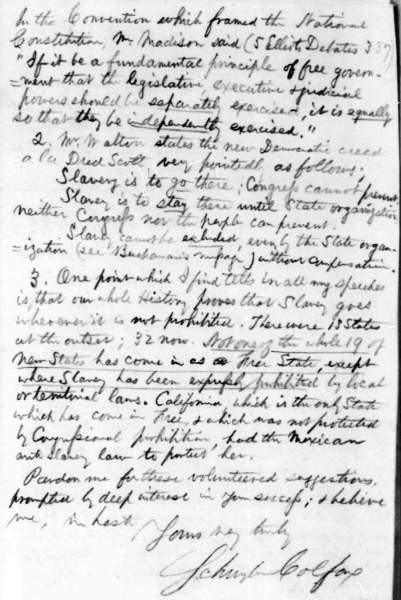 In the Convention which framed the National
Constitution, Mr. Madison said (5 Elliot's Debates 337)
"If it be a fundamental principle of free govern-
=ment that the legislative, executive & judicial
powers should be separately exercised, it is equally
so that they be independently exercised."
2. Mr. Walton states the new Democratic creed
a la Dred Scott very pointedly as follows;
Slavery is to go there; Congress cannot prevent.
Slavery is to stay there until State organization,
neither Congress nor the people can prevent.
Slavery cannot be excluded, even by the State organ-
=ization (see Buchanan's message) without compensation.
3. One point which I find tells in all my speeches
is that our whole History proves that Slavery goes
wherever it is not prohibited. There were 13 States
at the outset; 32 now. Not one of the whole 19 of
new States has come in as a Free State, except
where Slavery has been expressly prohibited by local
or territorial laws. California which is the only State
which has come in Free, & which was not protected
by Congressional prohibition, had the Mexican
anti slavery law to protect her.
Pardon me for these volunteered suggestions,
prompted by deep interest in your success; & believe
me, in haste
Yours very truly
Schuyler Colfax